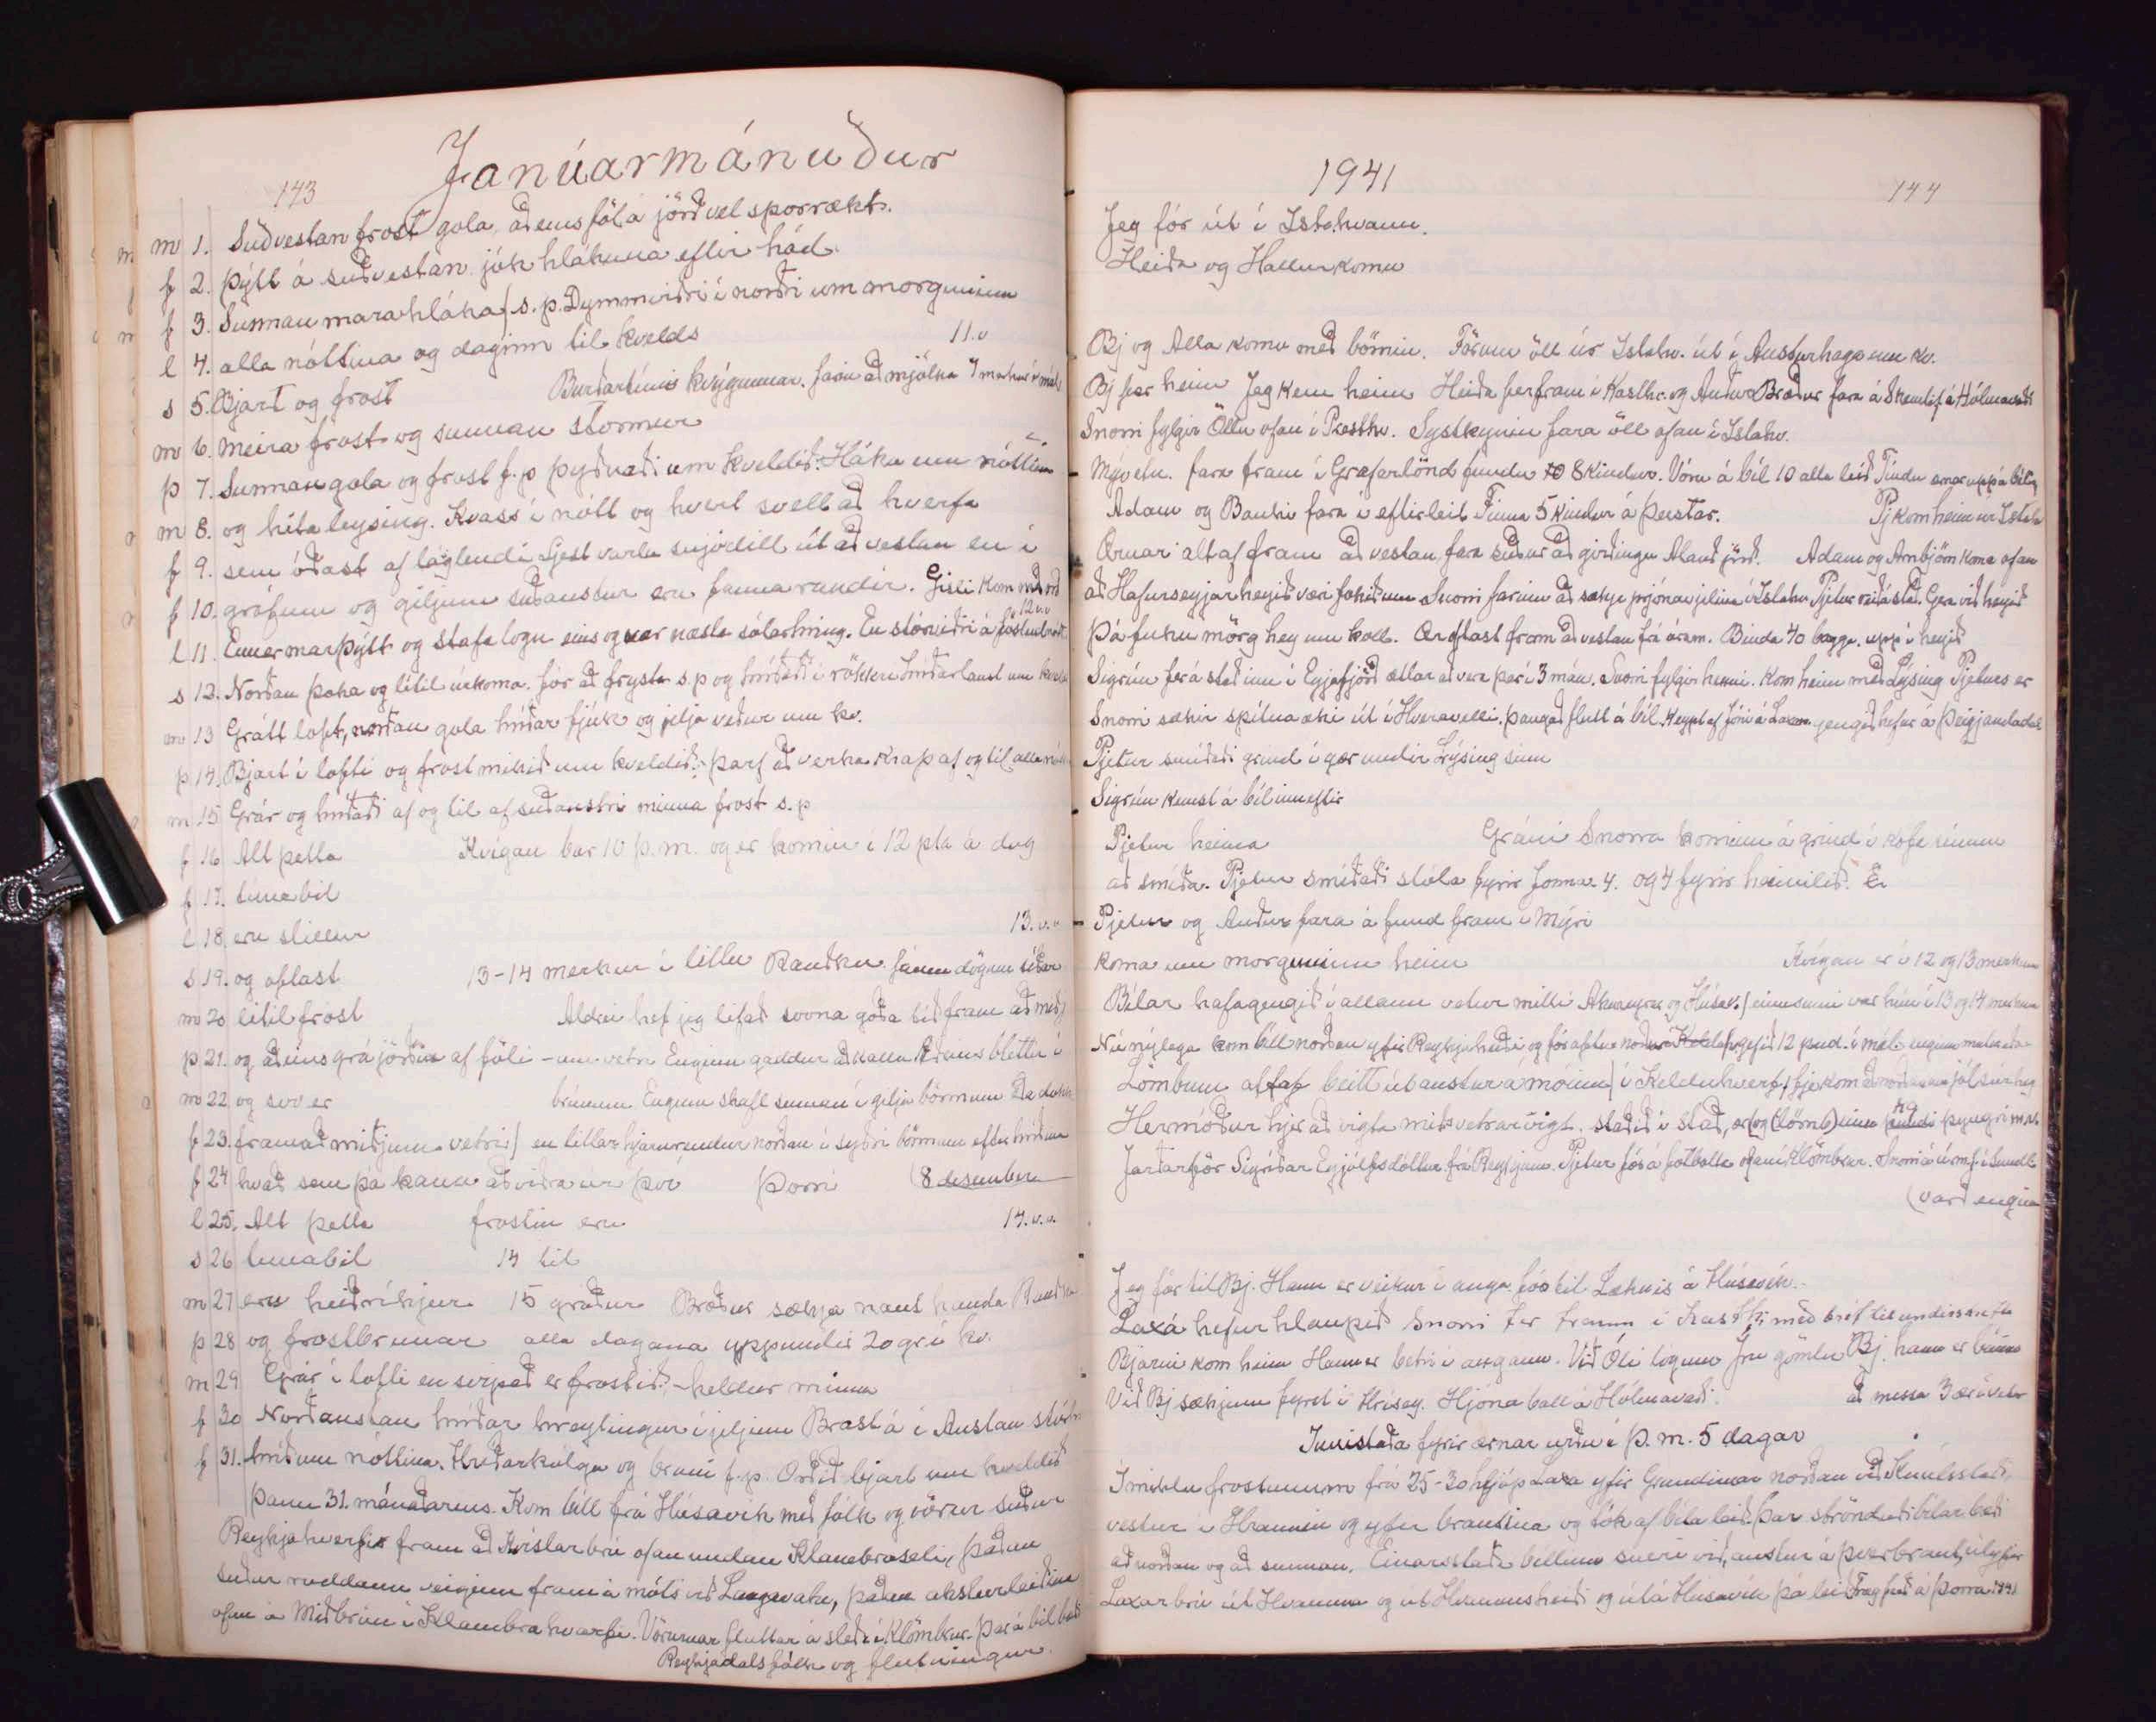 Janúarmánuður
143
m 1. Suðvestan frost gola aðeins föl á jörð vel sporrækt.
f 2. Þýtt á suðvestan jók hlákuna eftir hád.
f 3. Sunnan mara hláka s.p. Dymmviðri í norðri um morguninn
l 4. alla nóttina og daginn til kvelds 11.v
s 5. Bjart og frost Burðartími kvígunnar. farin að mjólka 7 merkur í mál
m 6. meira frost og sunnan stormur
þ 7. Sunnan gola og frost f.p þyðnaði um kveldið. Hláka um nóttina
m 8. og hita leysing. Hvass í nótt og hvert svell að hverfa
f 9. sem óðast af láglendi Sjest varla snjódíll út að vestan en í
f 10. gröfum og giljum suðaustur eru fannarendir. Gísli kom með
12 v.v
l 11. Enn er marþýtt og stafa logn eins og var næsta sólarhring. En stórviðri á
s 12. Norðan þoka og lítil úrkoma. fór að frysta s.p og hríðaði í rökkri hríðarlaust um kveld
m 13 Grátt loft, norðan gola hríðar fjúk og jelja veður um kv.
þ 14. Bjart í lofti og frost mikið um kveldið. þarf að verka krap af og til alla
m 15 Grár og hríðaði af og til af suðaustri minna frost s.p
f 16 Alt petta Kvígan bar 10 þ.m. og er komin í 12 pta á dag
f 17. tímabil
l 18. eru stillur 13.v.v
s 19. og oftast 13-14 merkur í litlu Rauðku fáum dögum síðar
m 20 lítil frost Aldrei hef jeg lifað svona góða tíð fram að miðj
þ 21. og aðeins grá jörðin af föli - um vetri Enginn gaddur að kalla Aðeins blettir í
m 22 og svo er brúnum Enginn skafl sunnan í gilja börmum
f 23. fram að miðjum vetri en litlar hjarnrendur norðan í syðri börmum eftir hríðina
f 24 hvað sem þá kann að viðra úr því Þorri 8 desember
l 25. Alt petta frostin eru 14.v.v.
s 26 tímabil 14 til
m 27 eru heiðríkjur 15 gráður Bræður sækja naut handa Rauðku
þ 28 og frostbrunar alla dagana uppundir 20 gr í kv.
m 29 Grár í lofti en svipað er frostið, - heldur minna
f 30 Norðaustan hríðar hreytingur í jeljum Brast á í Austan
f 31. hríð um nóttina. Hríðarkólga og bruni f.p. Orðið bjart um kveldið
þann 31. mánaðarins. Kom bíll frá Húsavík með fólk og vörur suður
Reykjahverfi fram að Kvíslar brú ofan undan Klambraseli, þaðan
suður ruddann veiginn fram á móts við Langavatn, þaðan
ofan á Miðbrún í Klambra hvarfi. Vörurnar fluttar á sleða í Klömbur. Þar á bíl
Reykjadals fólk og flutningur.
1941
144
Jeg fór út í Ystahvamm.
Heiða og Hallur komu
Bj og Alla komu með börnin. Fórum öll úr Ystahv. út í Austurhaga um kv.
Bj fer heim Jeg kem heim Heiða fer fram í Kasthv. og Auður Bræður fara á skemtif á Hólmavaði
Snorri fylgir Öllu ofan í Presthv. Systkynin fara öll ofan í Ystahv.
Mývetn. fara fram í Grafarlönd fundu 8 kindur. Vóru á bíl 10 alla leið
Adam og Bauki fara í eftirleit Finna 5 kindur á Þeistar. Pj kom heim úr Ystah
Ærnar altaf fram að vestan fara suður að girðingu Alauð jörð. Adam og Arnbjörn koma ofan
að Hafurseyjar heyið væri fokið um Snorri farinn að sækja prjónavjelina í Ystahv Pjetur reið á stað. Gera við heyið
Þá fuku mörg hey um koll. Ær oftast fram að vestan frá áram. Binda 40 bagga. upp í heyið
Sigrún fer á stað inn í Eyjafjörð ætlar að vera þar í 3 mán. Snorri fylgir henni. Kom heim með Lýsing Pjeturs er
Snorri sækir spítna æki út í Hveravelli. þangað flutt á bíl. Keypt af Jóni á Laxam. gengið hefur á Þeigjandadal
Pjetur smíðaði grind í gær undir Lýsing sinn
Sigrún kemst á bíl inneftir
Pjetur heima Gráni Snorra kominn á grind í kofa sínum
að smíða. Pjetur smíðaði stóla fyrir Jonna. 4. og 4 fyrir heimilið.
Pjetur og Auður fara á fund fram í Mýri
koma um morguninn heim Kvígan er í 12 og 13 merkum
Bílar hafa gengið í allann vetur milli Akureyrar og Húsav. einusinni var hún í 13 og 14 merkum
Nú nýlega kom bíll norðan yfir Reykjaheiði og fór aftur norður
Lömbum altaf beitt út austur á móinn í Kelduhverfi
Hermóður hjer að vigta miðsvetrar vigt. staðið í stað, ær og (lömb)
Jarðarför Sigríðar Eyjólfsdóttur frá Reykjum. Pjetur fór á fótbolta ofan í Klömbur.
(varð engin
Jeg fór til Bj. Hann er veikur í auga fór til Læknis á Húsavík.
Laxá hefur hlaupið Snorri fer fram í Kasthv með brjef til undirskrifta
Bjarni kom heim Hann er betri í auganu. Við Óli lógum frú gömlu Bj. hann er búinn
Við Bj sækjum fyrst í Hrísey. Hjónaball á Hólmavaði. að messa 3 ær í vetur
Innistaða fyrir ærnar urðu í þ. m. 5 dagar
Í miklu frostunum frá 25-30 hljóp Laxá yfir Grundirnar norðan við Knútsstaði
vestur í Hraunin og yfir brautina og tók af bíla leið. Þar strönduðu bílar bæði
að norðan og að sunnan. Einarsstaða bíllinn sneri við, austur á þverbraut, út yfir
Laxárbrú út Hvamma og út Hvammsheiði og útá Húsavík þá leið. á þorra 1941